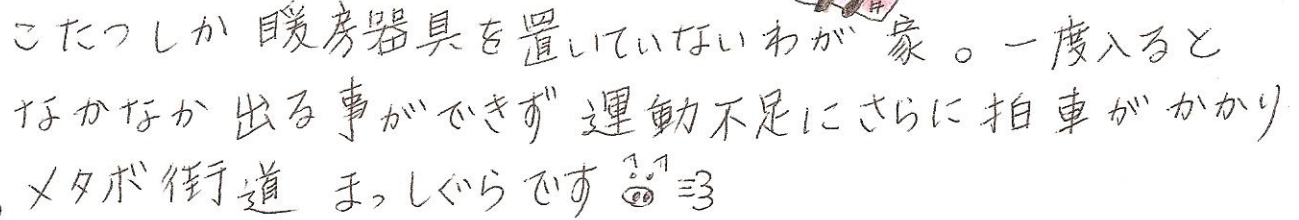 こたつしか暖房器具を置いていないわが家。一度入ると
なかなか出る事ができず運動不足にさらに拍車がかかり
メタボ街道まっしぐらです